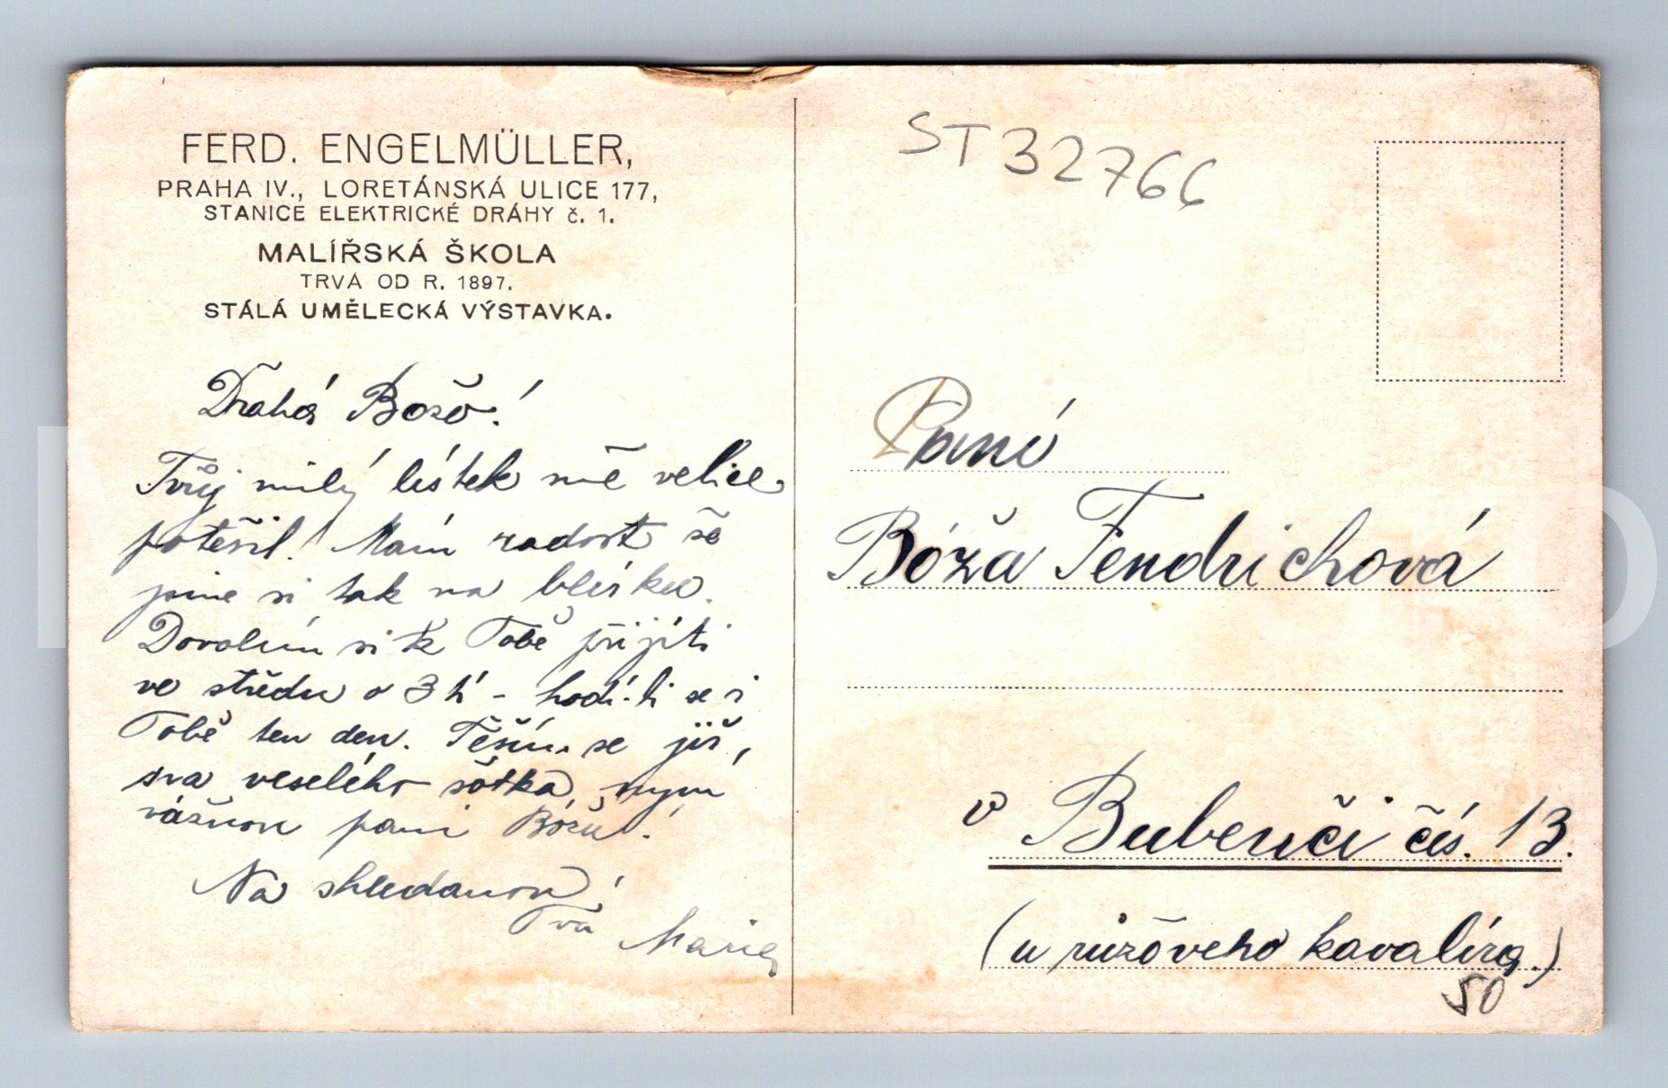 FERD. ENGELMÜLLER,
PRAHA IV., LORETÁNSKÁ ULICE 177,
STANICE ELEKTRICKÉ DRÁHY č. 1.
MALÍŘSKÁ ŠKOLA
TRVÁ OD R. 1897.
STÁLÁ UMĚLECKÁ VÝSTAVKA.
Drahá Božo!
Tvůj milý lístek mě velice
potěšil! Mám radost že
jsme si tak na blízku.
Dovolím si k Tobě přijíti
ve středu o 3 h - hodí-li se i
Tobě ten den. Těším se již,
na veselého
paní Bóžu!
Na shledanou!
Tvá Marie
ST 32766
Paní
Bóža Fendrichová
v Bubenči čís. 13.
(u růžového kavalíra.)
50